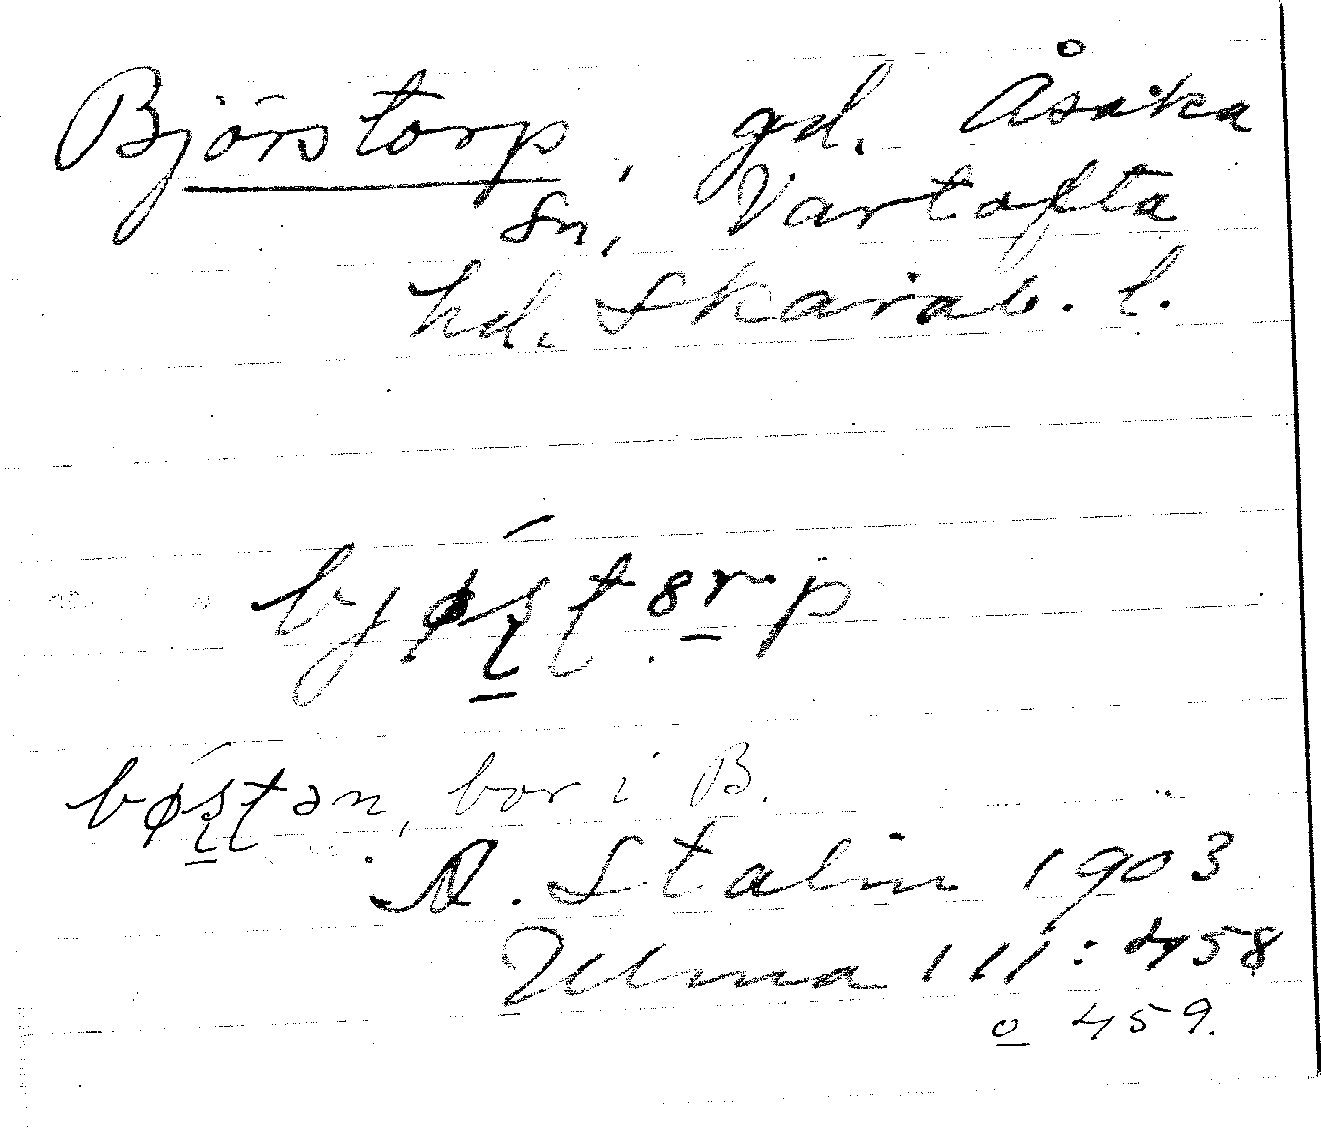 Björstorp, gd. Åsaka
sn, Vartofta
hd. Skarab. l.
bjǿʂʈɞrp
bǿʂʈən, bor i B.
A. Stalin 1903
Ulma 111:458
o 459.